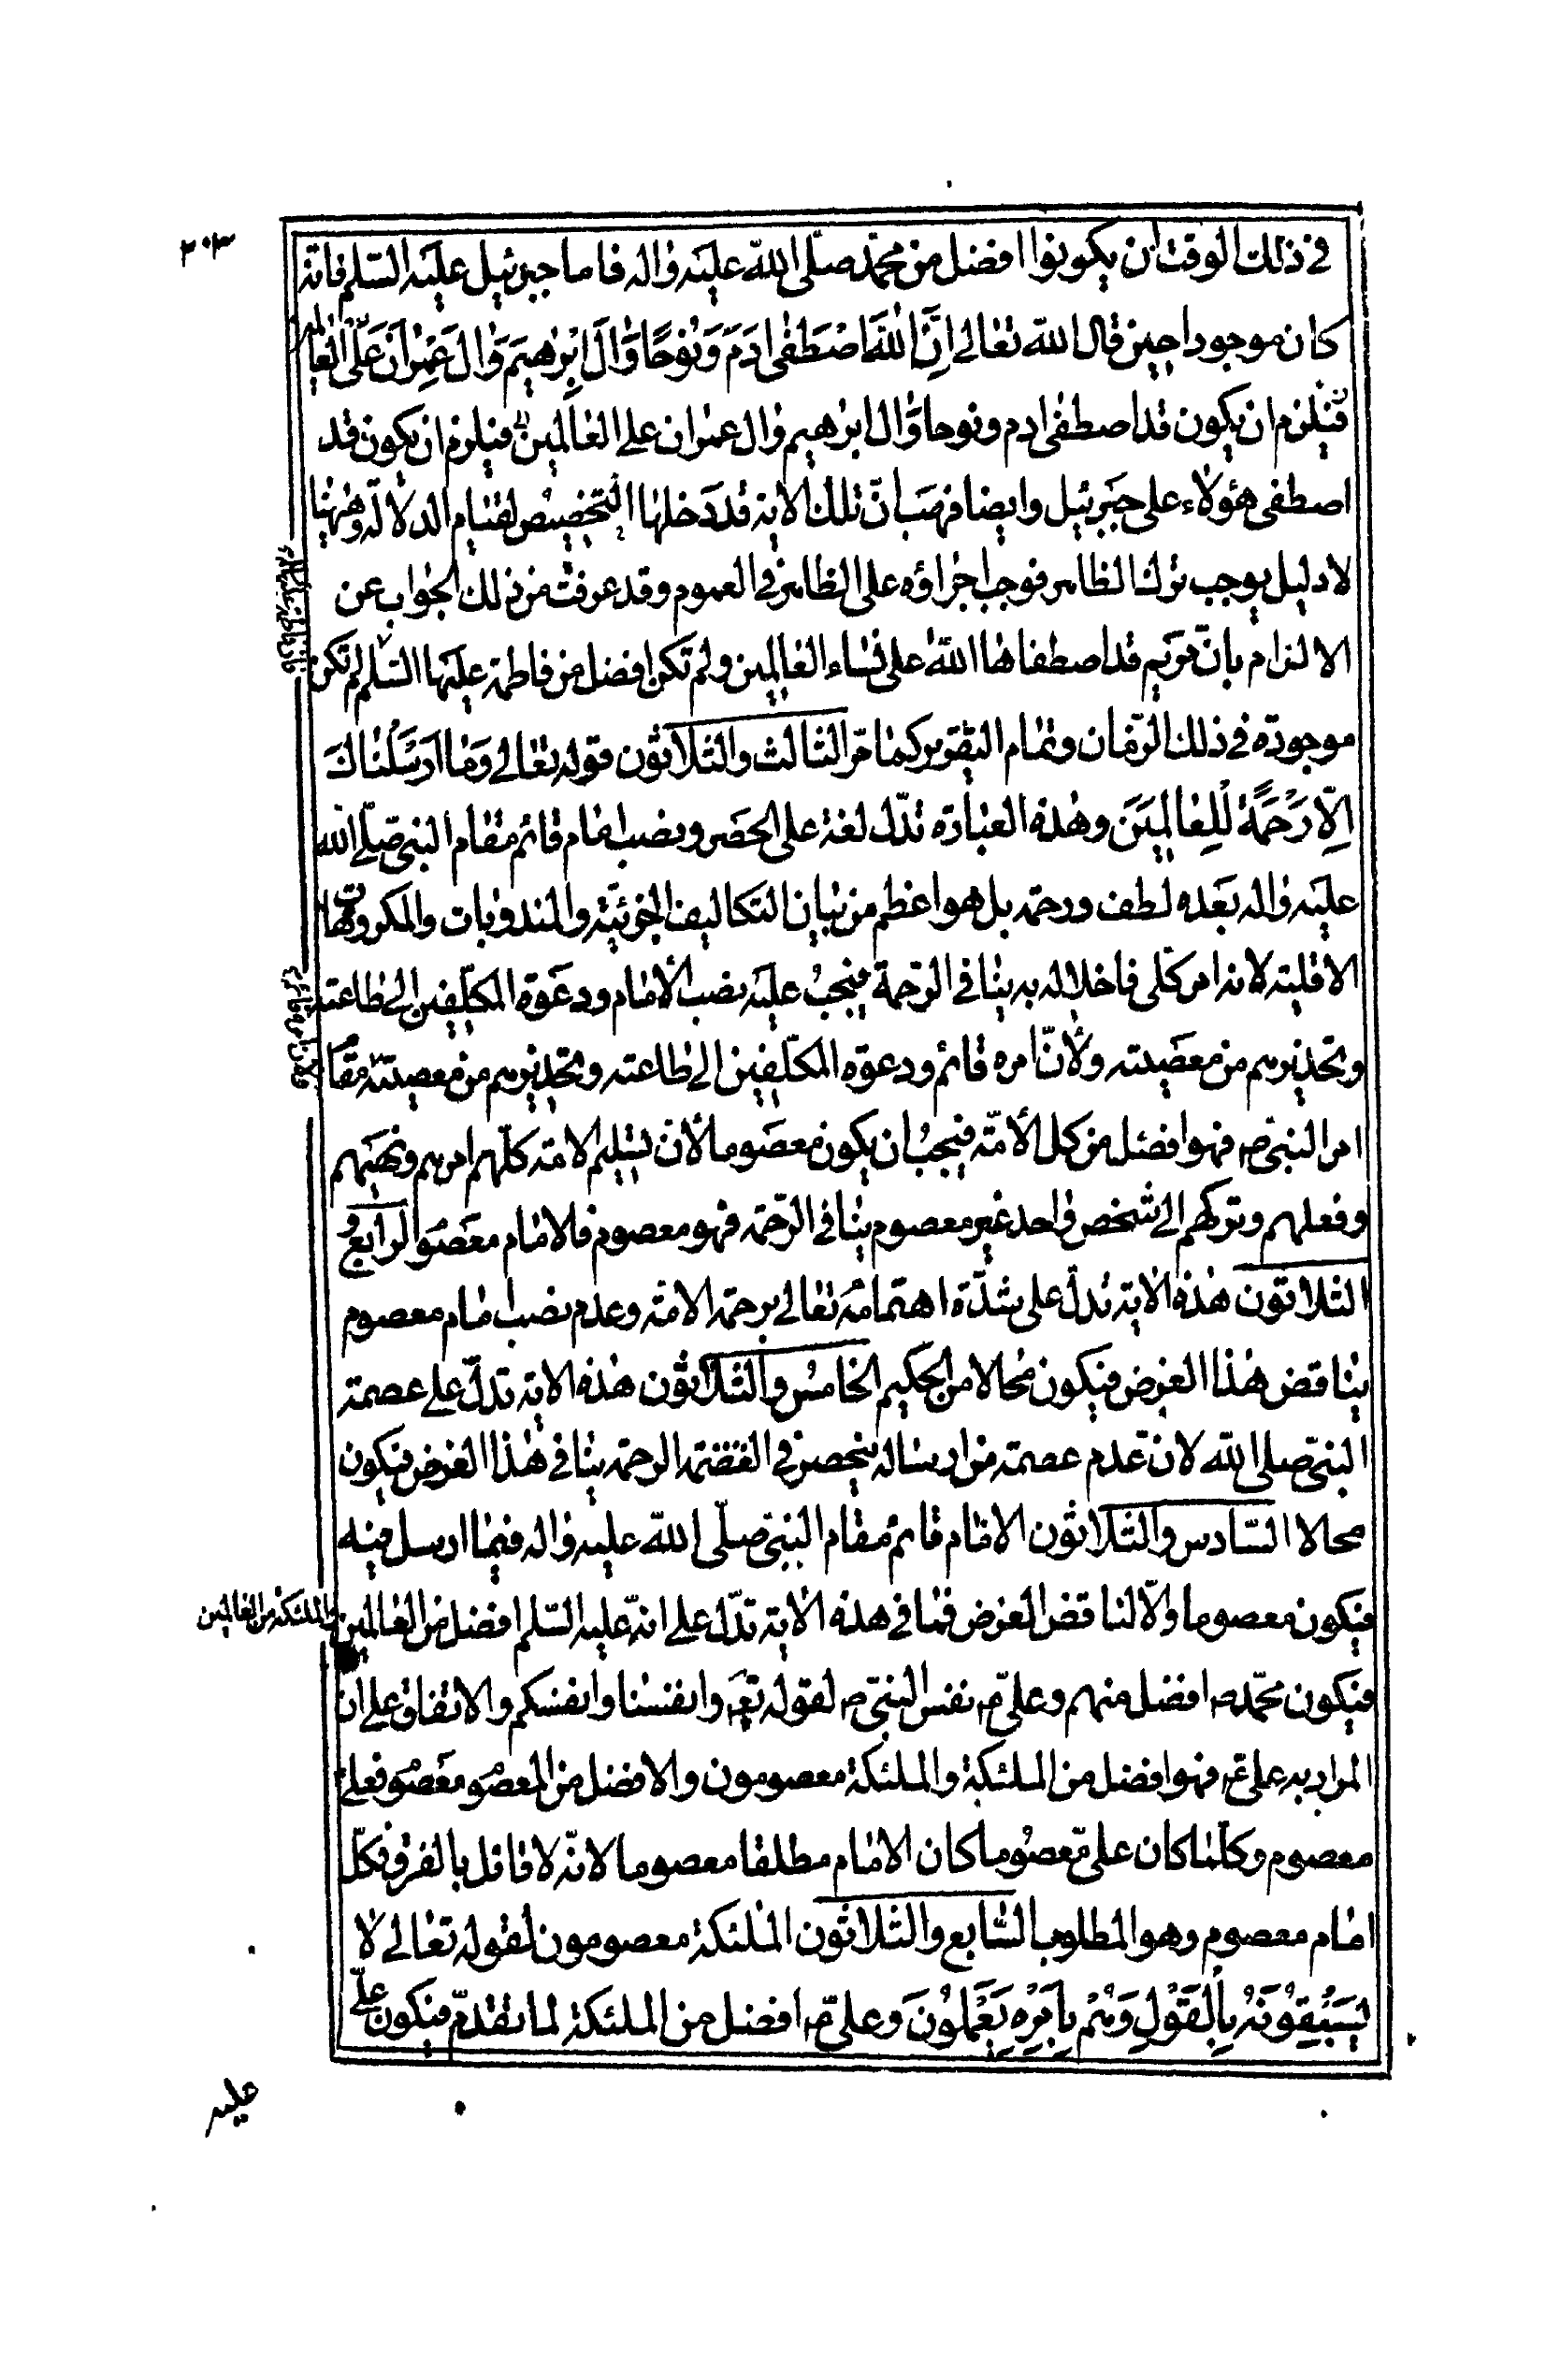 ٢٠٣
في ذلك الوقت ان يكونوا افضل من محمّد صلّى اللّه عليه واله فاما جبرئيل عليه السّلم فانه
كان موجودا حين قال اللّه تعالى اِنَّ اللّٰهَ اصْطَفٰى ادَمَ وَنُوحًا وَّالَ اِبْرٰهيمَ وَالَ عِمْرٰانَ عَلَى الْعٰالمين
فيلزم ان يكون قد اصطفى ادم ونوحا وال ابرهيم وال عمران على العالمين فيلزم ان يكون قد
اصطفى هؤلاء على جبرئيل وايضا فهب انّ تلك الاية قد دخلها التخصيص لقيام الدلالة وههنا
لا دليل يوجب ترك الظاهر فوجب اجراؤه على الظاهر في العموم وقد عرفت من ذلك الجواب عن
الالزام بانّ مريم قد اصطفاها اللّه على نساء العالمين ولم تكن افضل من فاطمة عليها السّلم لم تكن
فان فاطمة عليها السلام
موجودة في ذلك الزمان وتمام التقرير كما مرّ الثالث والثلاثون قوله تعالى وَمٰا اَرْسَلْنٰاكَ
اِلّا رَحْمَةً لِلْعٰالَمينَ وهذه العبارة تدّل لغة على الحصر ونصب امام قائم مقام النبي صلّى اللّه
عليه واله بعده لطف ورحمة بل هو اعظم من بيان التكاليف الجزئيّة والمندوبات والمكروهات
الاقلية لانه امر كلّى فاخلاله به ينافي الرّحمة فيجب عليه نصب الامام ودعوة المكلّفين الى طاعته
وتحذيرهم من معصيته ولأنّ امره قائم ودعوة المكلّفين الى طاعته وتحذيرهم من معصيته مقام
امر النبيّ ص فهو افضل من كل الأمّة فيجب ان يكون معصوما لأن تسليم الامّة كلّهم امرهم ونهيهم
وفعلهم وتركهم الى شخص واحد غير معصوم ينافي الرّحمة فهو معصوم فالامام معصوم الرابع و
الثلاثون هٰذه الاية تدلّ على شدّة اهتمامه تعالى برحمة الامّة وعدم نصب امام معصوم
يناقض هٰذا الغرض فيكون محالا من الحكيم الخامس والثلاثون هٰذه الاية تدلّ على عصمة
النبيّ صلى اللّه لانّ عدم عصمة من ارساله ينحصر في الرحمة ينافي هٰذا الغرض فيكون
محالا السّادس والثلاثون الامام قائم مقام النبيّ صلّى اللّه عليه واله فيما ارسل فيه
فيكون معصوما والّا لناقض الغرض فما في هذه الاية تدّل على انّه عليه السّلم افضل من العالمين
والملئكة من العالمين
فيكون محمّد ص افضل منهم وعلىّ ع نفس النبيّ ص لقوله تع وانفسنا وانفسكم والاتفاق على ان
المراد به على ع فهو افضل من الملئكة والملئكة معصومون والافضل من المعصوم معصوم فعلى
معصوم وكلّما كان علىّ معصوما كان الامام مطلقا معصوما لانّه لا قائل بالفرق فكلّ
امام معصوم وهو المطلوب السّابع والثلاثون الملئكة معصومون لقوله تعالى لا
يَسْبِقُونَهُ بِالْقَوْلِ وَهُمْ بِاَمْرِهِ يَعْمَلُونَ وعلىّ ع افضل من الملئكة لما تقدّم فيكون علىّ
عليه